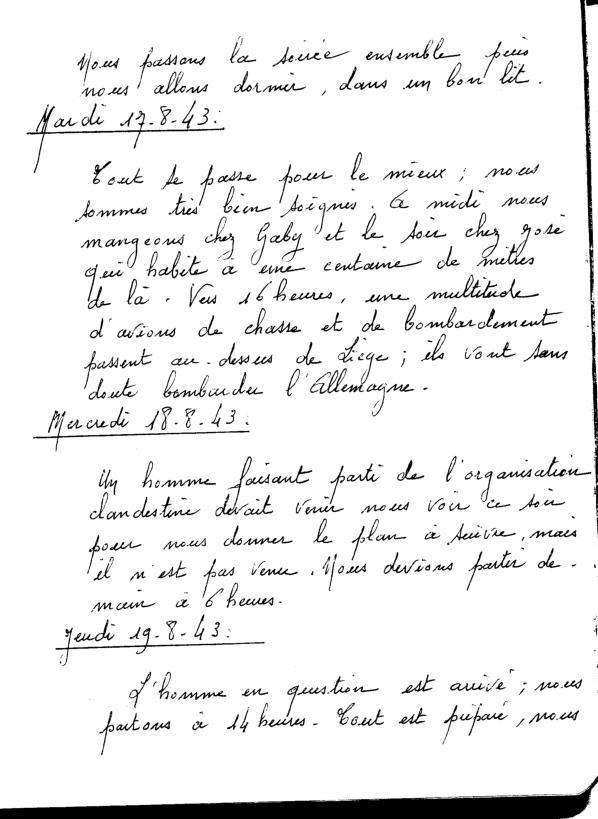 Nous passons la soirée ensemble puis
nous allons dormir, dans un bon lit.
Mardi 17-8-43:
Tout se passe pour le mieux ; nous
sommes très bien soignés. A midi nous
mangeons chez Gaby et le soir chez José
qui habite à une centaine de mètres
de là. Vers 16 heures, une multitude
d'avions de chasse et de bombardement
passent au-dessus de Liège ; ils vont sans
doute bombarder l'Allemagne.
Mercredi 18-8-43:
Un homme faisant parti de l'organisation
clandestine devait venir nous voir ce soir
pour nous donner le plan à suivre, mais
il n'est pas venu. Nous devions partir de-
main à 6 heures.
Jeudi 19-8-43:
L'homme en question est arrivé ; nous
partons à 14 heures. Tout est préparé, nous